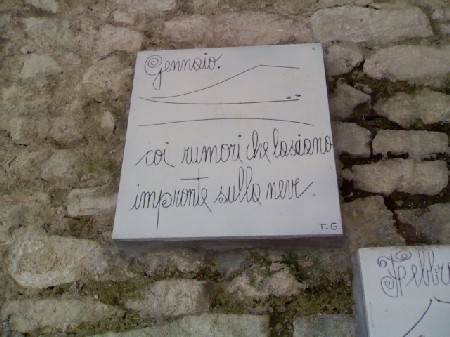 Gennaio.
coi rumori che lasciano
impronte sulla neve.
T. G
Febbr